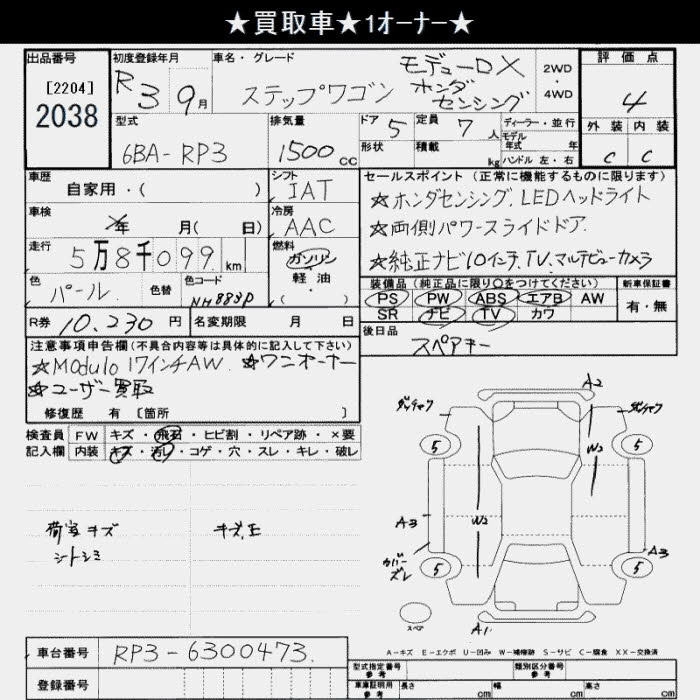 ★買取車★1オーナー★
出品番号 初度登録年月 車名・グレード 評価点
[2204]
2038
R3 9月
ステップワゴン モデューロX ホンダセンシング
2WD・4WD
4
外装 内装
C C
型式 排気量 ドア 5 定員 7人 ディーラー・並行
6BA-RP3 1500cc 形状 積載 kg
モデル年式 年
ハンドル 左・右
車歴 シフト セールスポイント(正常に機能するものに限ります)
自家用・( ) IAT
☆ホンダセンシング、LEDヘッドライト
車検 年 月( 日) 冷房 AAC
☆両側パワースライドドア、
走行 5万8千099km 燃料 ガソリン・軽油・( )
☆純正ナビ10インチ、TV、マルチビューカメラ
色 色替 色コード
パール NH883P
装備品(純正品に限り○をつけてください) 新車保証書
PS PW ABS エアB AW 有・無
SR ナビ TV カワ
R券 10,230円 名変期限 月 日
後日品
スペアキー
注意事項申告欄(不具合内容等は具体的に記入して下さい)
☆Modulo 17インチAW、☆ワンオーナー
☆ユーザー買取
修復歴 有[箇所 ]
検査員 FW キズ・飛石・ヒビ割・リペア跡・×要
記入欄 内装 キズ・汚レ・コゲ・穴・スレ・キレ・破レ
荷室キズ キズ、E
シートシミ
A2
5 5
W2
A3 W2
A3
カバーズレ
5 5
スペア A1
A-キズ E-エクボ U-凹み W-補修跡 S-サビ C-腐食 XX-交換済
車台番号 RP3-6300473
登録番号
型式指定番号 参考 類別区分番号 参考
車庫証明用 参考 長さ cm 幅 cm 高さ cm